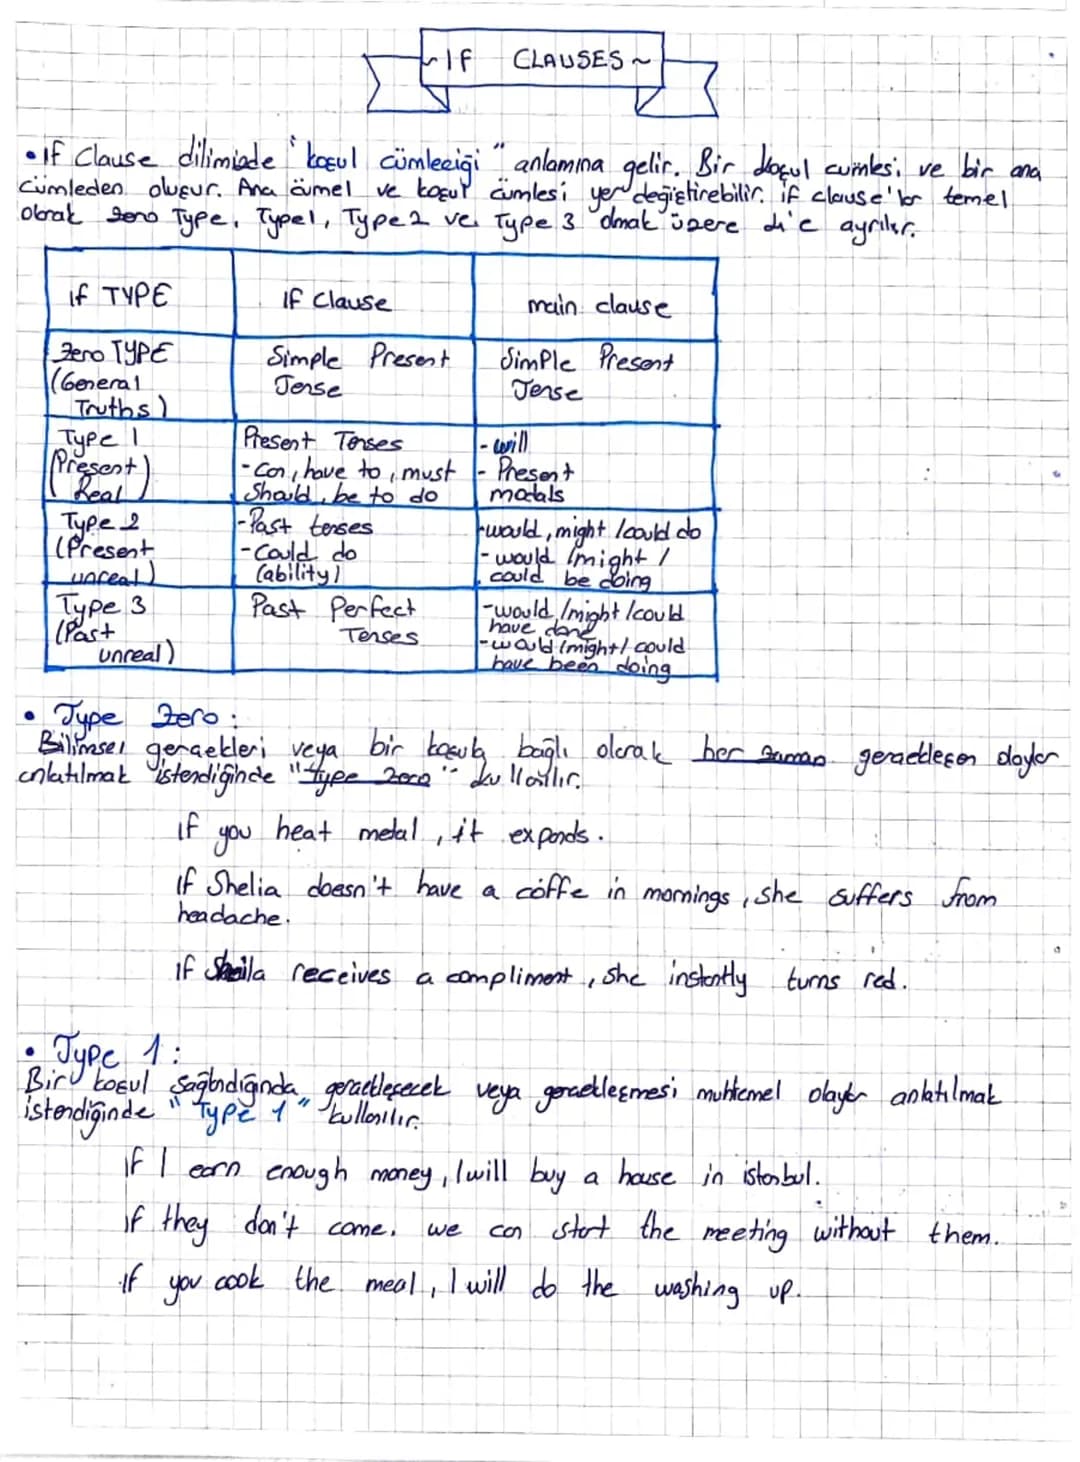 ~IF CLAUSES~
• If Clause dilimizde "koşul cümleciği" anlamına gelir. Bir koşul cümlesi ve bir ana
cümleden oluşur. Ana cümel ve koşul cümlesi yer değiştirebilir. if clause'lar temel
olarak zero Type, Type1, Type2 ve Type 3 olmak üzere ayrılır.
if TYPE
If Clause
main clause
Zero TYPE
(General
Truths)
Simple Present
Tense
Simple Present
Tense
Type 1
(Present
Real)
Present Tenses
-can, have to, must
should, be to do
- will
- Present
modals
Type 2
(Present
unreal)
-Past tenses
-Could do
(ability)
-would, might /could do
- would /might /
could be doing
Type 3
(Past
unreal)
Past Perfect
Tenses
-would /might /could
have done
-would /might / could
have been doing
• Type Zero:
Bilimsel gerçekleri veya bir koşula bağlı olarak her zaman gerçekleşen olaylar
anlatılmak istendiğinde "type zero" kullanılır.
if you heat metal, it expands.
If Shelia doesn't have a coffe in mornings, she suffers from
headache.
if Sheila receives a compliment, she instantly turns red.
• Type 1:
Bir koşul sağlandığında gerçekleşecek veya gerçekleşmesi muhtemel olaylar anlatılmak
istendiğinde "Type 1" kullanılır.
if I earn enough money, I will buy a house in istanbul.
if they don't come, we can start the meeting without them.
if you cook the meal, I will do the washing up.